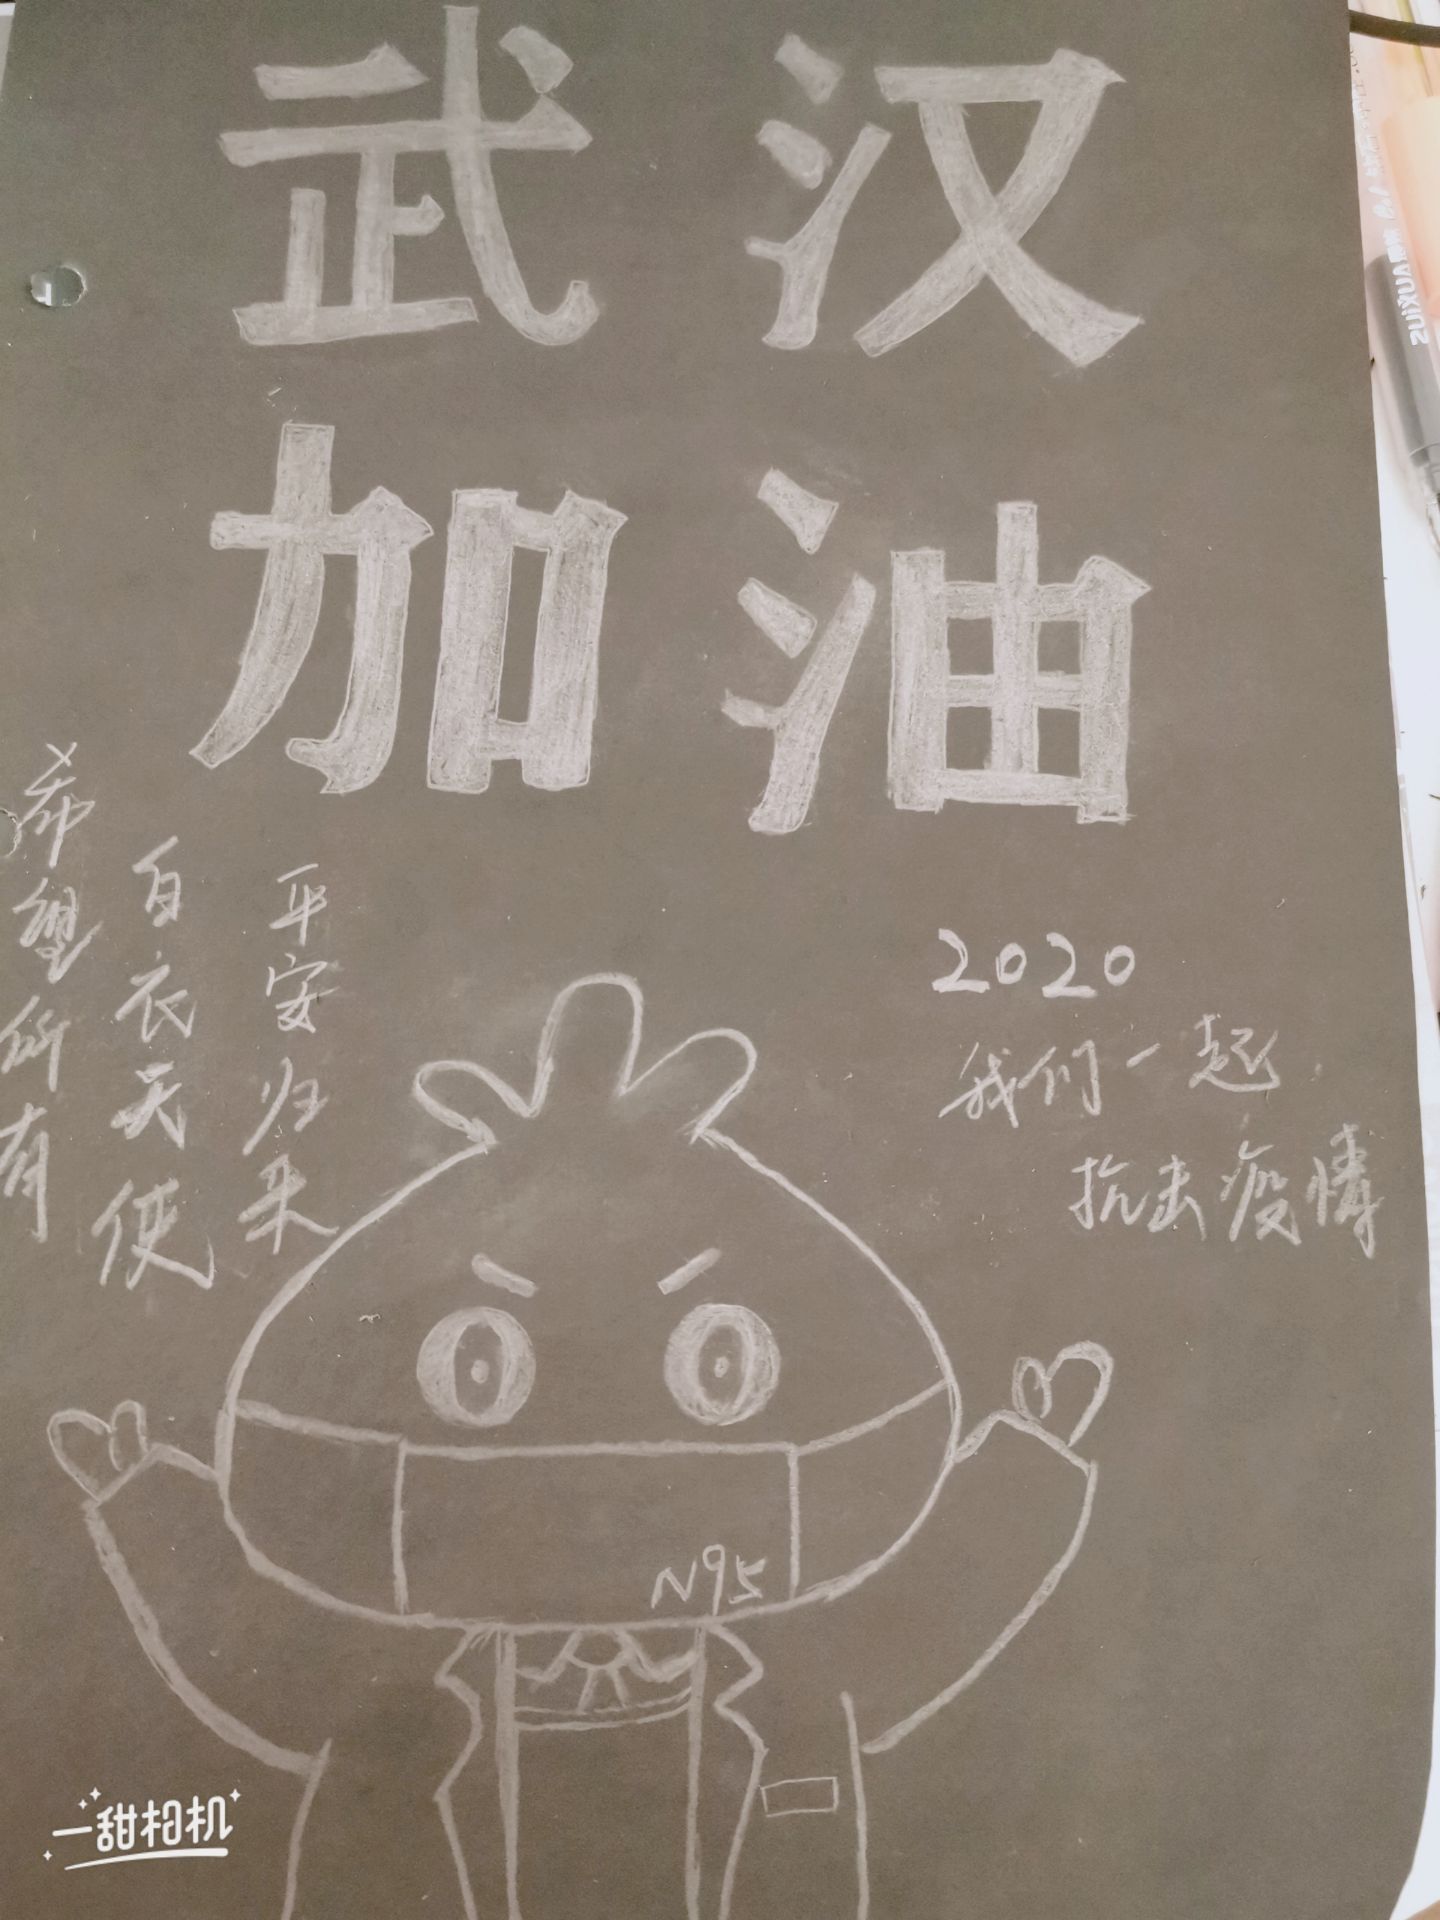 武汉
加油
希望所有
白衣天使
平安归来
2020
我们一起
抗击疫情
N95
一甜相机